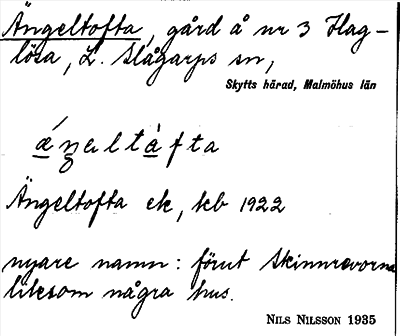 Ängeltofta, gård å nr 3 Hag-
lösa, L. Slågarps sn,
Skytts härad, Malmöhus län
Ängeltofta ek, kb 1922
nyare namn: förut Skinnrevorna
liksom några hus.
NILS NILSSON 1935